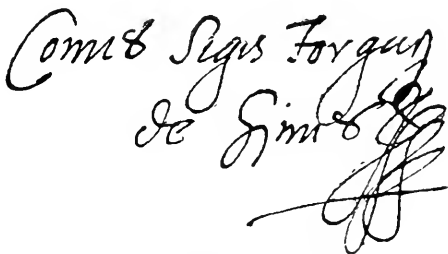 Comes Sigis Forgach
de Gimes